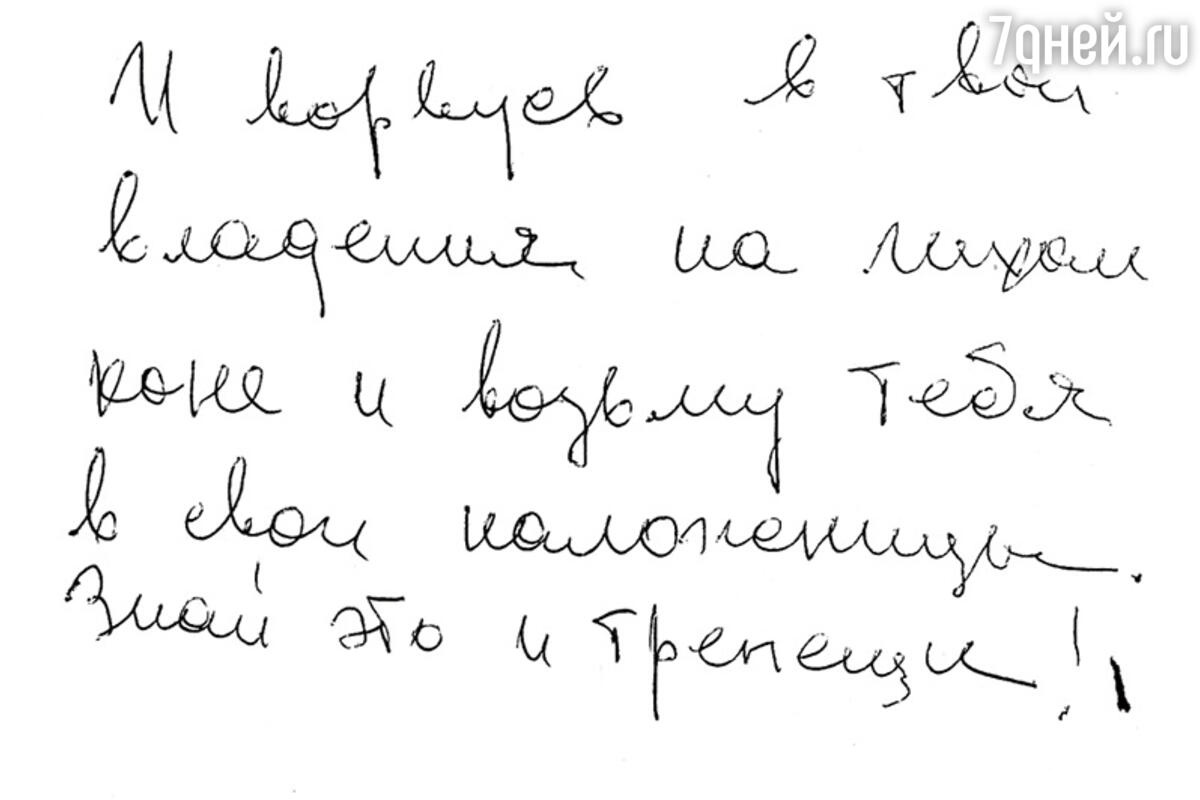 7дней.ru
И ворвусь в твои
владения на лихом
коне и возьму тебя
в свои наложницы.
Знай это и трепещи!